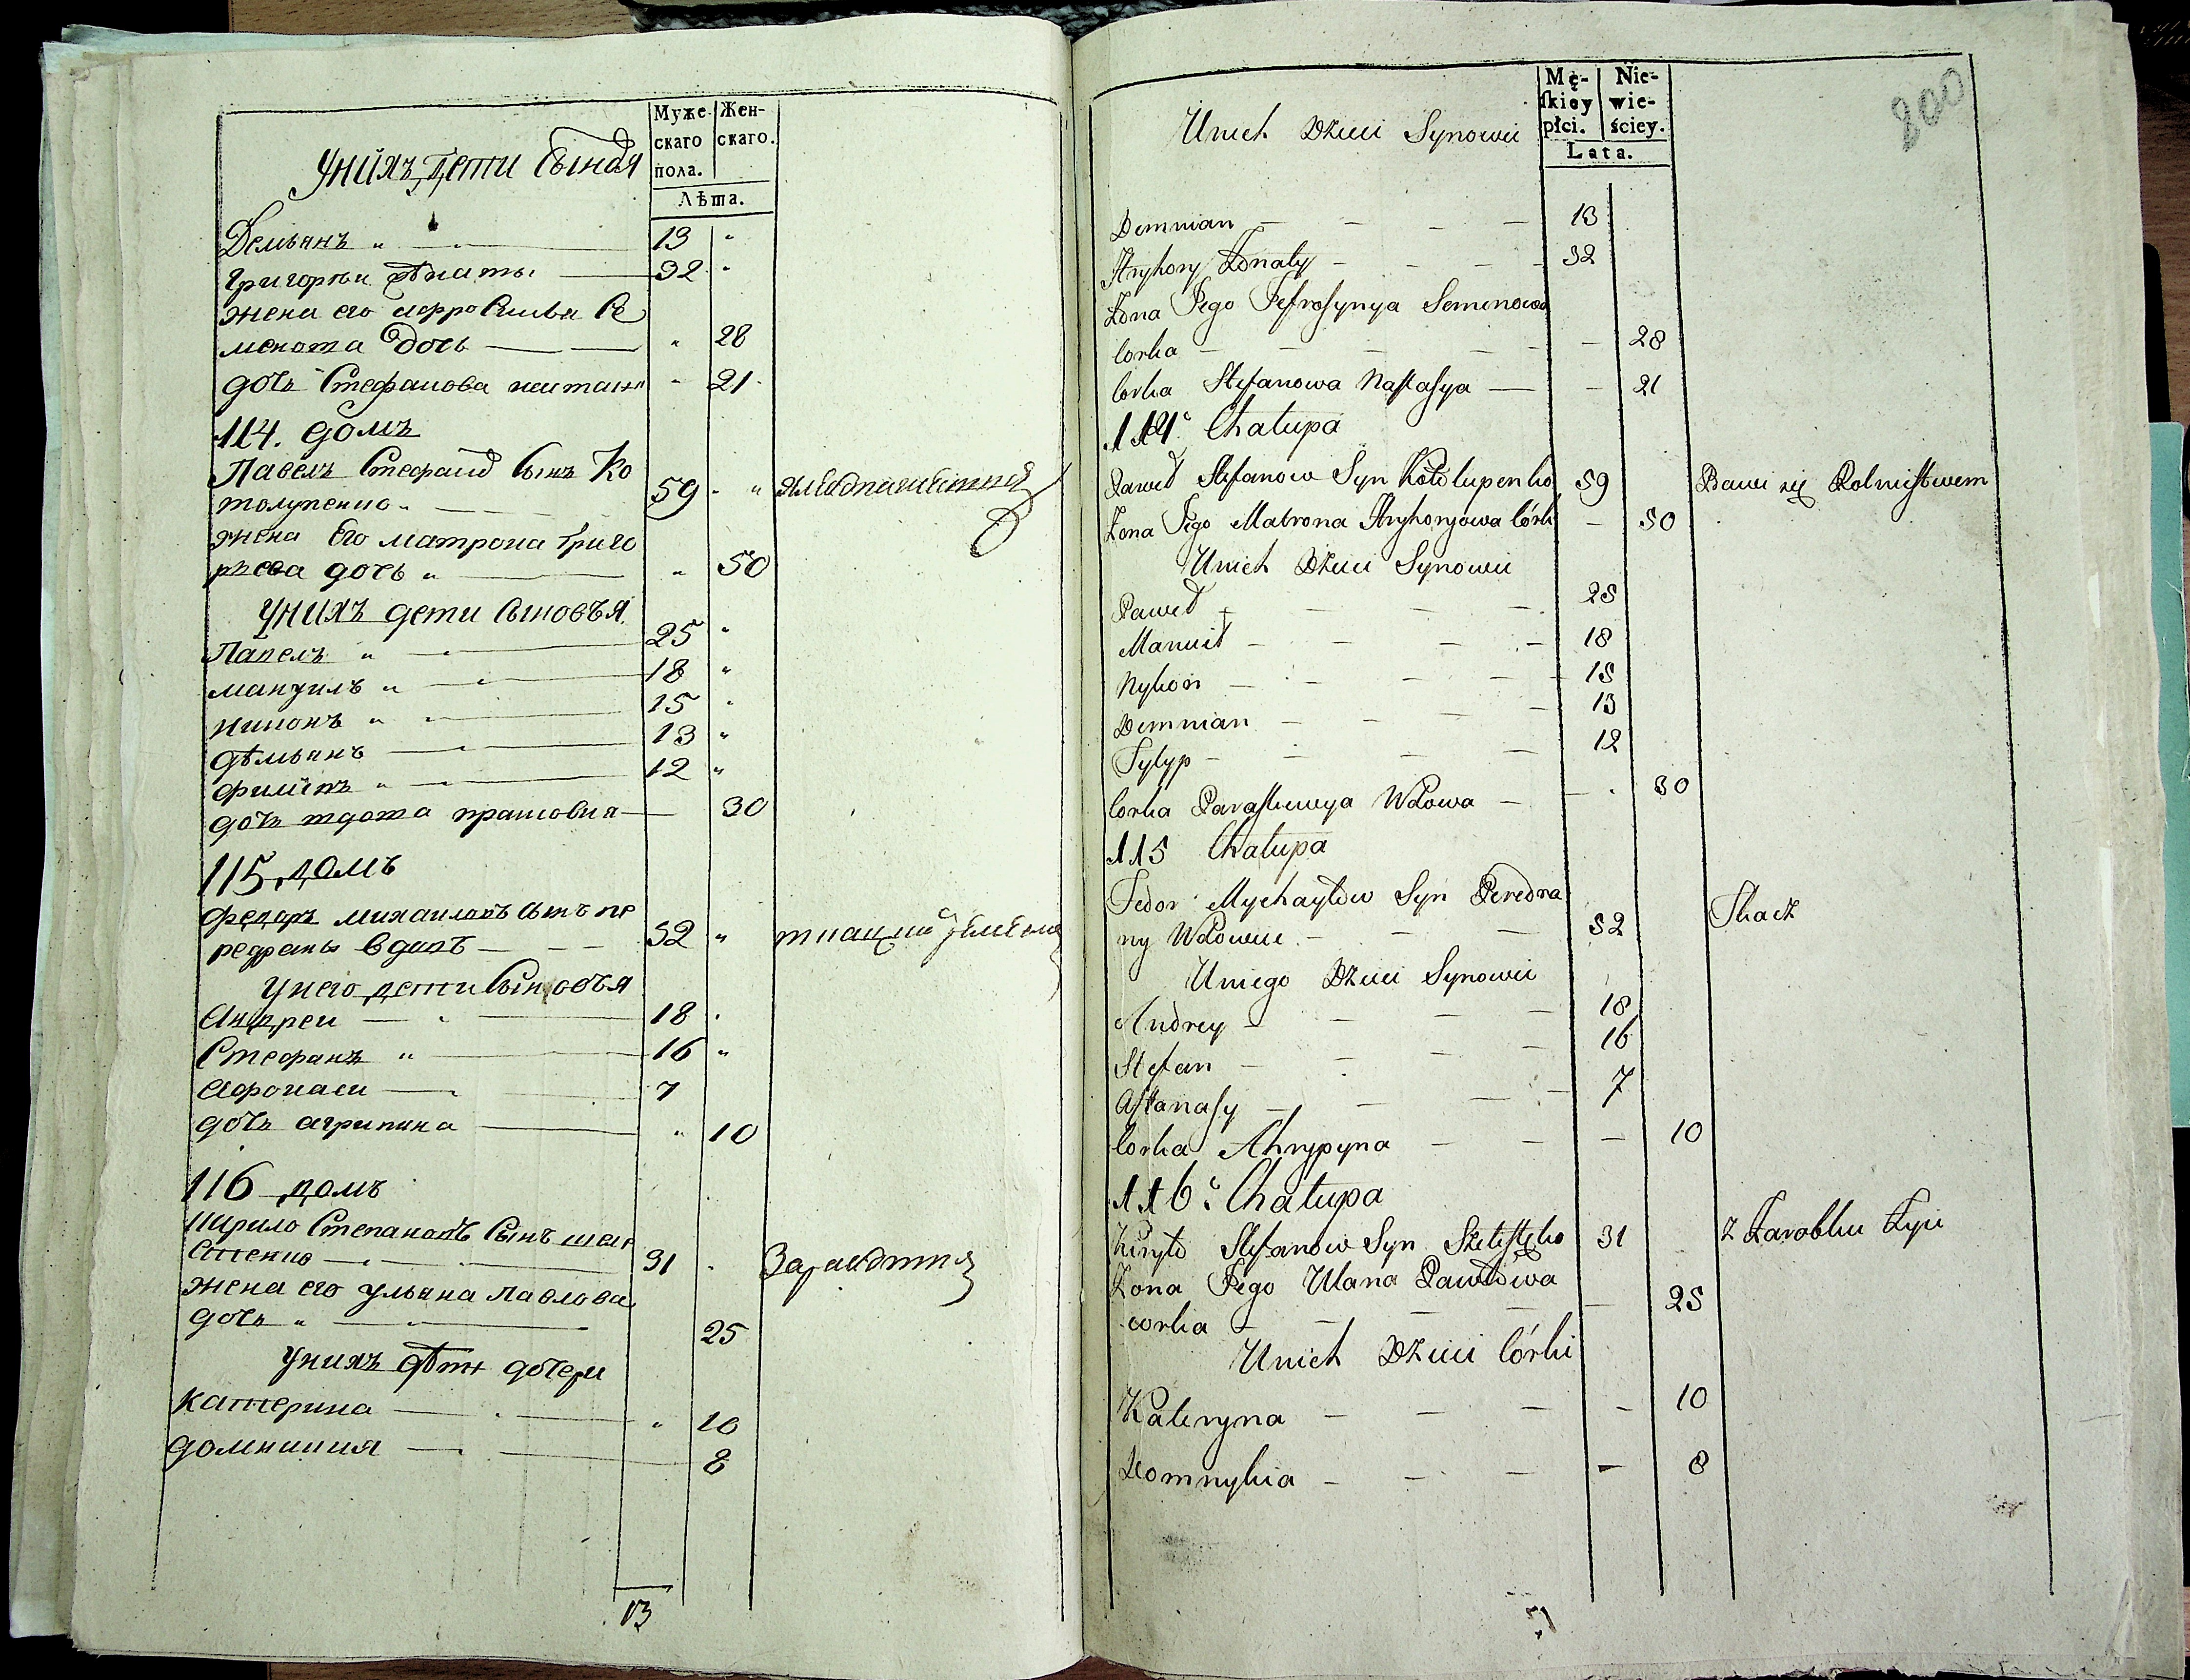 Муже- Жен-
скаго скаго.
пола.
Лѣта.
Унихъ дети Сынов
Демьянъ 13
Григореи Жѣнаты 32
жена его Афросинья Се
менова дочь 28
дочь Стефанова 21
114. домъ
Павелъ Стефанов Сынъ Ко
толупенко 59
жена Его матрона Григо
рьева дочь 50
Унихъ дети Сыновья
Павелъ 25
мануилъ 18
никонъ 15
дѣмьянъ 13
филипъ 12
дочь вдова прасковия 30
115 домъ
федаръ михаиловъ Сынъ пе
редраны вдовъ 52
Унего дети Сыновья
Андреи 18
Стефанъ 16
Афонаси 7
дочь агрипина 10
116 домъ
Кирило Степановъ Сынъ шеле
стенко 31
жена его ульяна павлова
дочь 25
Унихъ дѣти дочери
Катерина 10
домникия 8
13
200
Mę- Nie-
skiey wie-
płci. ściey.
Lata.
Unich Dzieci Synowie
Demnian 13
Hryhory Żonaty 32
Żona Jego Jefrosynya Semenowa
Corka 28
Corka Stefanowa Nastasya 21
114 Chałupa
Paweł Stefanow Syn Kotołupenko 59 Bawi się Rolnictwem
Żona Jego Matrona Hryhoryowa Córka 50
Unich Dzieci Synowie
Paweł 25
Manuił 18
Nykon 15
Demnian 13
Fylyp 12
Corka Paraskiewya Wdowa 30
115 Chałupa
Fedor Mychayłow Syn Peredra
ny Wdowiec 52 Tkacz
Uniego Dzieci Synowie
Andrey 18
Stefan 16
Aftanasy 7
Corka Ahrypyna 10
116 Chałupa
Kiryło Stefanow Syn Szelestęko 31 Z Zarobku Żyie
Żona Jego Ulana Pawłowa
corka 25
Unich Dzieci Córki
Kateryna 10
Domnykia 8